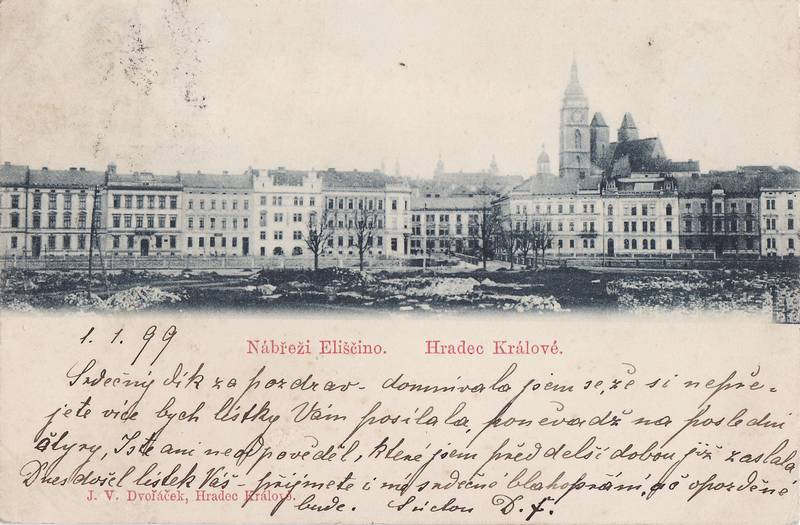 1. 1. 99
Nábřeži Eliščino. Hradec Králové.
Srdečný dík za pozdrav - domnívala jsem se, že si nepře-
jete více bych lístky Vám posílala, poněvadž na poslední
čtyry, Jste ani neodpověděl, které jsem před delší dobou již zaslala
Dnes došel lístek Váš - přijmete i mé srdečné blahopřání, ač opozděné
J. V. Dvořáček, Hradec Králové.
bude. D. F.